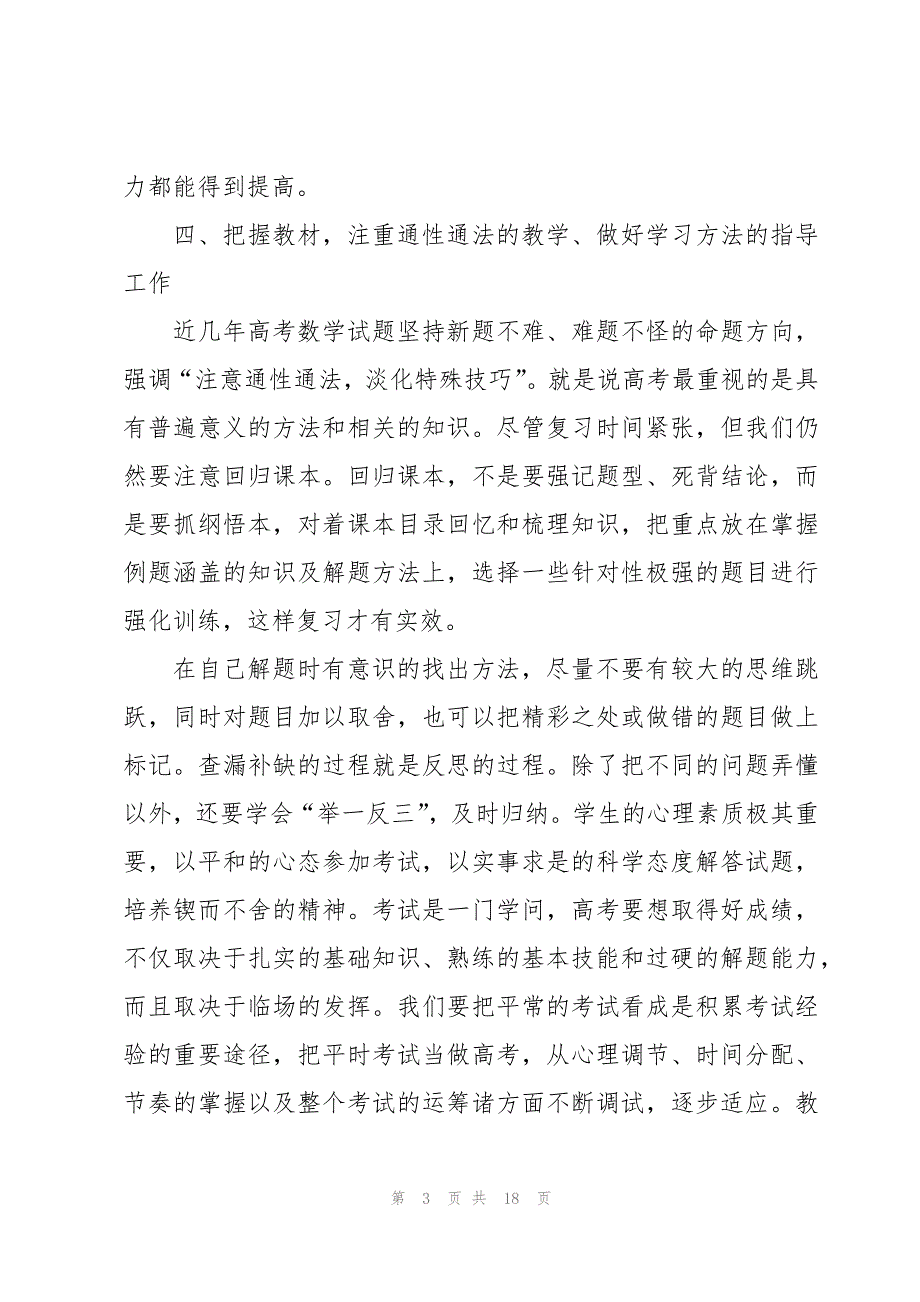 力都能得到提高。
四、把握教材，注重通性通法的教学、做好学习方法的指导
工作
近几年高考数学试题坚持新题不难、难题不怪的命题方向，
强调“注意通性通法，淡化特殊技巧”。就是说高考最重视的是具
有普遍意义的方法和相关的知识。尽管复习时间紧张，但我们仍
然要注意回归课本。回归课本，不是要强记题型、死背结论，而
是要抓纲悟本，对着课本目录回忆和梳理知识，把重点放在掌握
例题涵盖的知识及解题方法上，选择一些针对性极强的题目进行
强化训练，这样复习才有实效。
在自己解题时有意识的找出方法，尽量不要有较大的思维跳
跃，同时对题目加以取舍，也可以把精彩之处或做错的题目做上
标记。查漏补缺的过程就是反思的过程。除了把不同的问题弄懂
以外，还要学会“举一反三”，及时归纳。学生的心理素质极其重
要，以平和的心态参加考试，以实事求是的科学态度解答试题，
培养锲而不舍的精神。考试是一门学问，高考要想取得好成绩，
不仅取决于扎实的基础知识、熟练的基本技能和过硬的解题能力，
而且取决于临场的发挥。我们要把平常的考试看成是积累考试经
验的重要途径，把平时考试当做高考，从心理调节、时间分配、
节奏的掌握以及整个考试的运筹诸方面不断调试，逐步适应。教
第 3 页 共 18 页